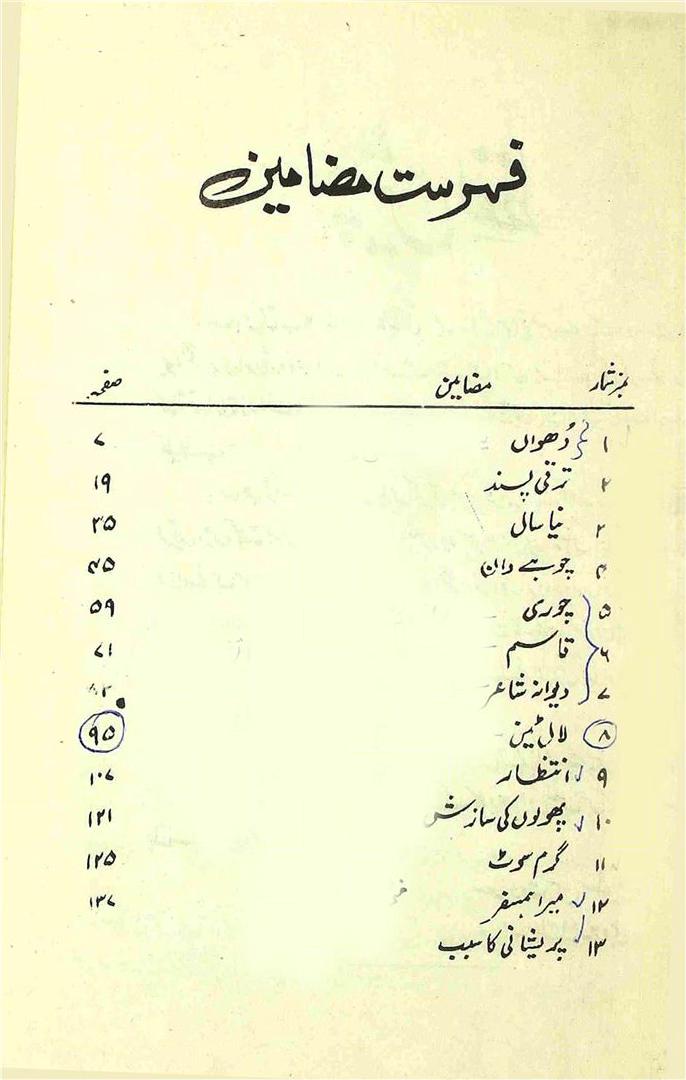 فہرست مضامین
نمبر شمار مضامین صفحہ
۱ دُھواں ۷
۲ ترقی پسند ۱۹
۳ نیا سال ۳۵
۴ چوہے دان ۴۵
۵ چوری ۵۹
۶ قاسم ۷۱
۷ دیوانہ شاعر
۸ لالٹین ۹۵
۹ انتظار ۱۰۷
۱۰ پھولوں کی سازش ۱۲۱
۱۱ گرم سوٹ ۱۲۵
۱۲ میرا ہمسفر ۱۳۷
۱۳ پریشانی کا سبب